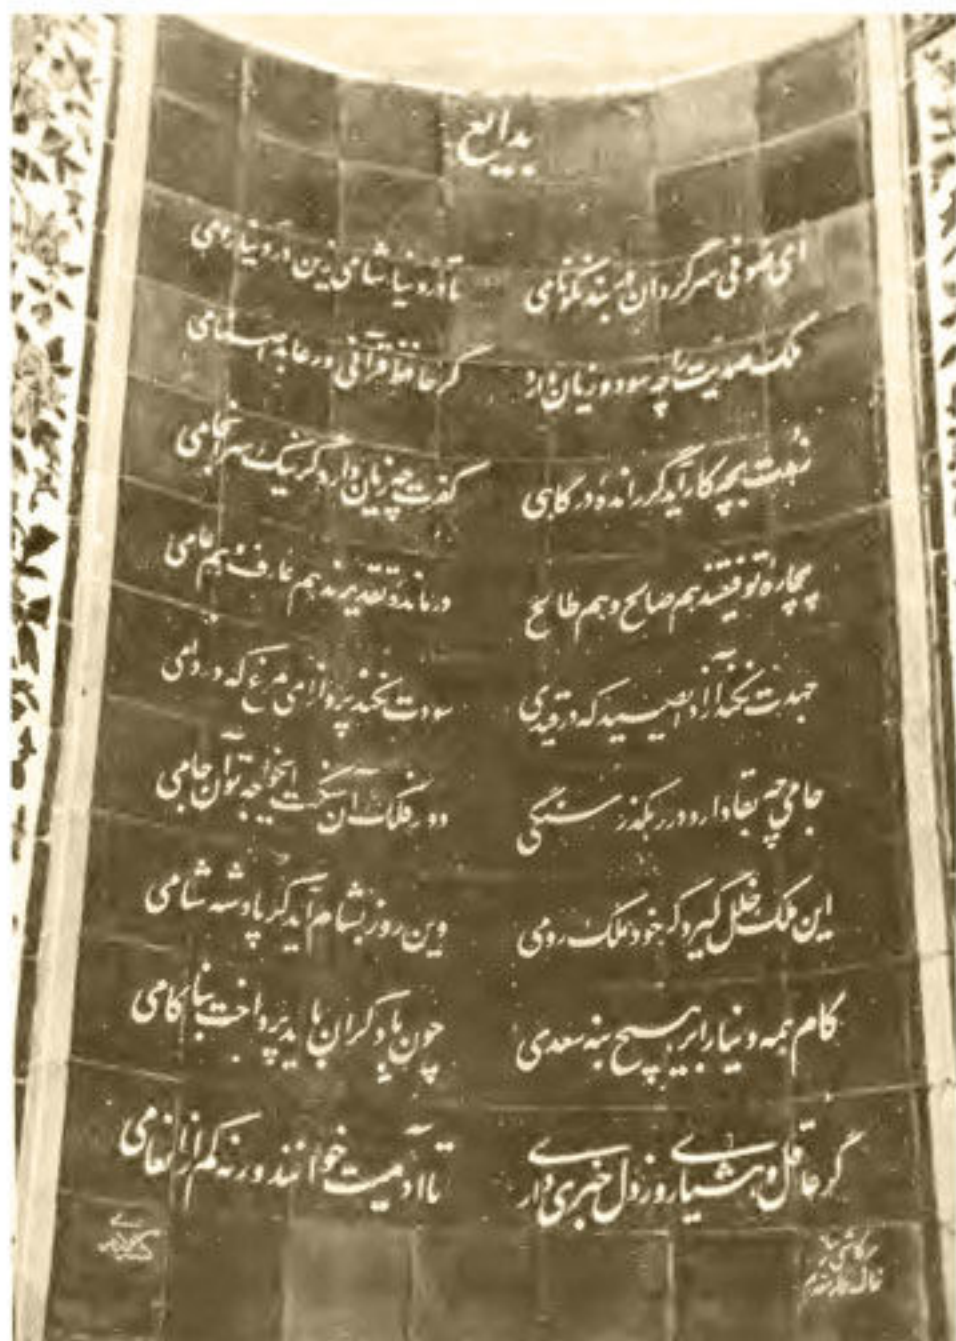 بدایع
ای صوفی سرگردان در بند نکونامی تا درد نیاشامی زین درد نیارامی
ملک صمدیت را چه سود و زیان دارد گر حافظ قرآنی ور عابد اصنامی
زهدت بچه کار آید گر رانده درگاهی کفرت چه زیان دارد گر نیک سرانجامی
بیچاره توفیقند هم صالح و هم طالح درمانده تقدیرند هم عارف و هم عامی
جهدت نکند آزاد ای صید که در قیدی سودت نکند پرواز ای مرغ که در دامی
جامی چه بقا دارد در رهگذر سنگی دور فلک آن سنگست ای خواجه تو آن جامی
این ملک خلل گیرد گر خود ملک رومی وین روز بشام آید گر پادشه شامی
کام همه دنیا را بر هیچ منه سعدی چون با دگران باید پرداخت بناکامی
گر عاقل و هشیاری وز دل خبری داری تا آدمیت خوانند ورنه کم از انعامی